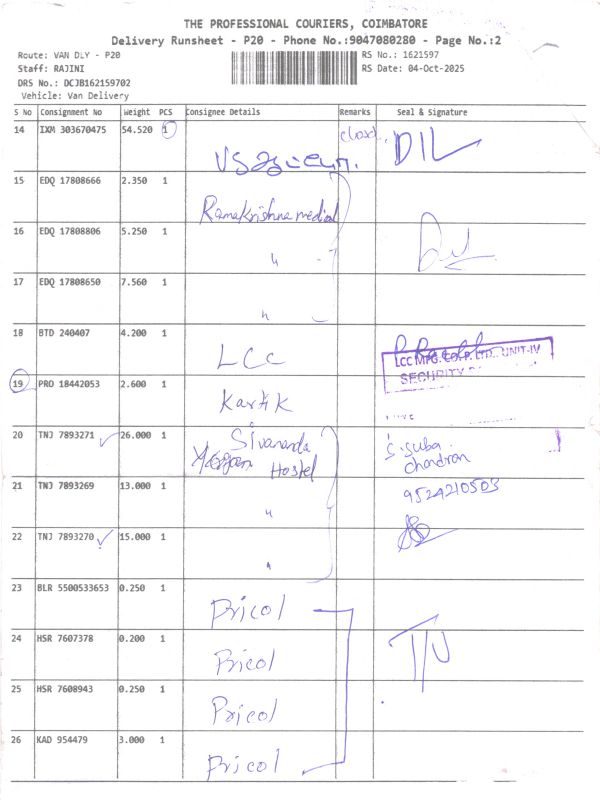 THE PROFESSIONAL COURIERS, COIMBATORE
Delivery Runsheet - P20 - Phone No.:9047080280 - Page No.:2
Route: VAN DLY - P20
Staff: RAJINI
DRS No.: DCJB162159702
Vehicle: Van Delivery
RS No.: 1621597
RS Date: 04-Oct-2025
S No Consignment No Weight PCS Consignee Details Remarks Seal & Signature
14 IXM 303670475 54.520 1 closed. DIL
15 EDQ 17808666 2.350 1 Ramakrishna medical
16 EDQ 17808806 5.250 1 "
17 EDQ 17808650 7.560 1 "
18 BTD 240407 4.200 1 LCC
LCC MFG. CORP. LTD., UNIT-IV
SECURITY
19 PRO 18442053 2.600 1 Kartik
20 TNJ 7893271 26.000 1 Sivananda
Hostel
S. Suba
chandran
21 TNJ 7893269 13.000 1 " 9524210503
22 TNJ 7893270 15.000 1 "
23 BLR 5500533653 0.250 1 Pricol
24 HSR 7607378 0.200 1 Pricol
25 HSR 7608943 0.250 1 Pricol
26 KAD 954479 3.000 1 Pricol